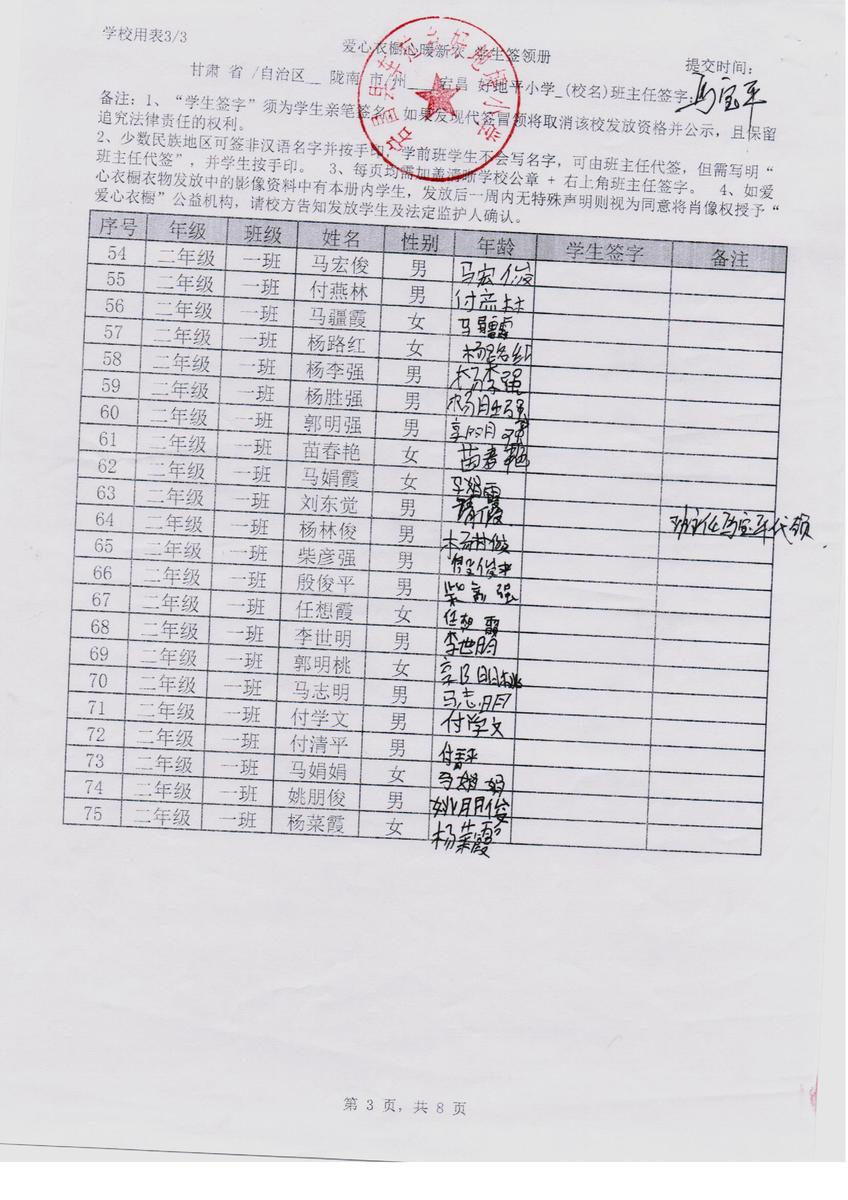 学校用表3/3
爱心衣橱心暖新衣 学生签领册
提交时间:
甘肃 省 /自治区__ 陇南 市/州____宕昌 好地平小学_(校名)班主任签字:马宝平
备注：1、“学生签字”须为学生亲笔签名，如果发现代签冒领将取消该校发放资格并公示，且保留
追究法律责任的权利。
2、少数民族地区可签非汉语名字并按手印，学前班学生不会写名字，可由班主任代签，但需写明“
班主任代签”，并学生按手印。 3、每页均需加盖清晰学校公章 + 右上角班主任签字。 4、如爱
心衣橱衣物发放中的影像资料中有本册内学生，发放后一周内无特殊声明则视为同意将肖像权授予“
爱心衣橱”公益机构，请校方告知发放学生及法定监护人确认。
序号 年级 班级 姓名 性别 年龄 学生签字 备注
54 二年级 一班 马宏俊 男 马宏俊
55 二年级 一班 付燕林 男 付燕林
56 二年级 一班 马疆霞 女 马疆霞
57 二年级 一班 杨路红 女 杨路红
58 二年级 一班 杨李强 男 杨李强
59 二年级 一班 杨胜强 男 杨胜强
60 二年级 一班 郭明强 男 郭明强
61 二年级 一班 苗春艳 女 苗春艳
62 二年级 一班 马娟霞 女 马娟霞
63 二年级 一班 刘东觉 男
64 二年级 一班 杨林俊 男 杨林俊 班主任马宝平代领
65 二年级 一班 柴彦强 男 殷俊平
66 二年级 一班 殷俊平 男 柴彦强
67 二年级 一班 任想霞 女 任想霞
68 二年级 一班 李世明 男 李世明
69 二年级 一班 郭明桃 女 郭明桃
70 二年级 一班 马志明 男 马志明
71 二年级 一班 付学文 男 付学文
72 二年级 一班 付清平 男 付清平
73 二年级 一班 马娟娟 女 马娟娟
74 二年级 一班 姚朋俊 男 姚朋俊
75 二年级 一班 杨菜霞 女 杨菜霞
第 3 页，共 8 页